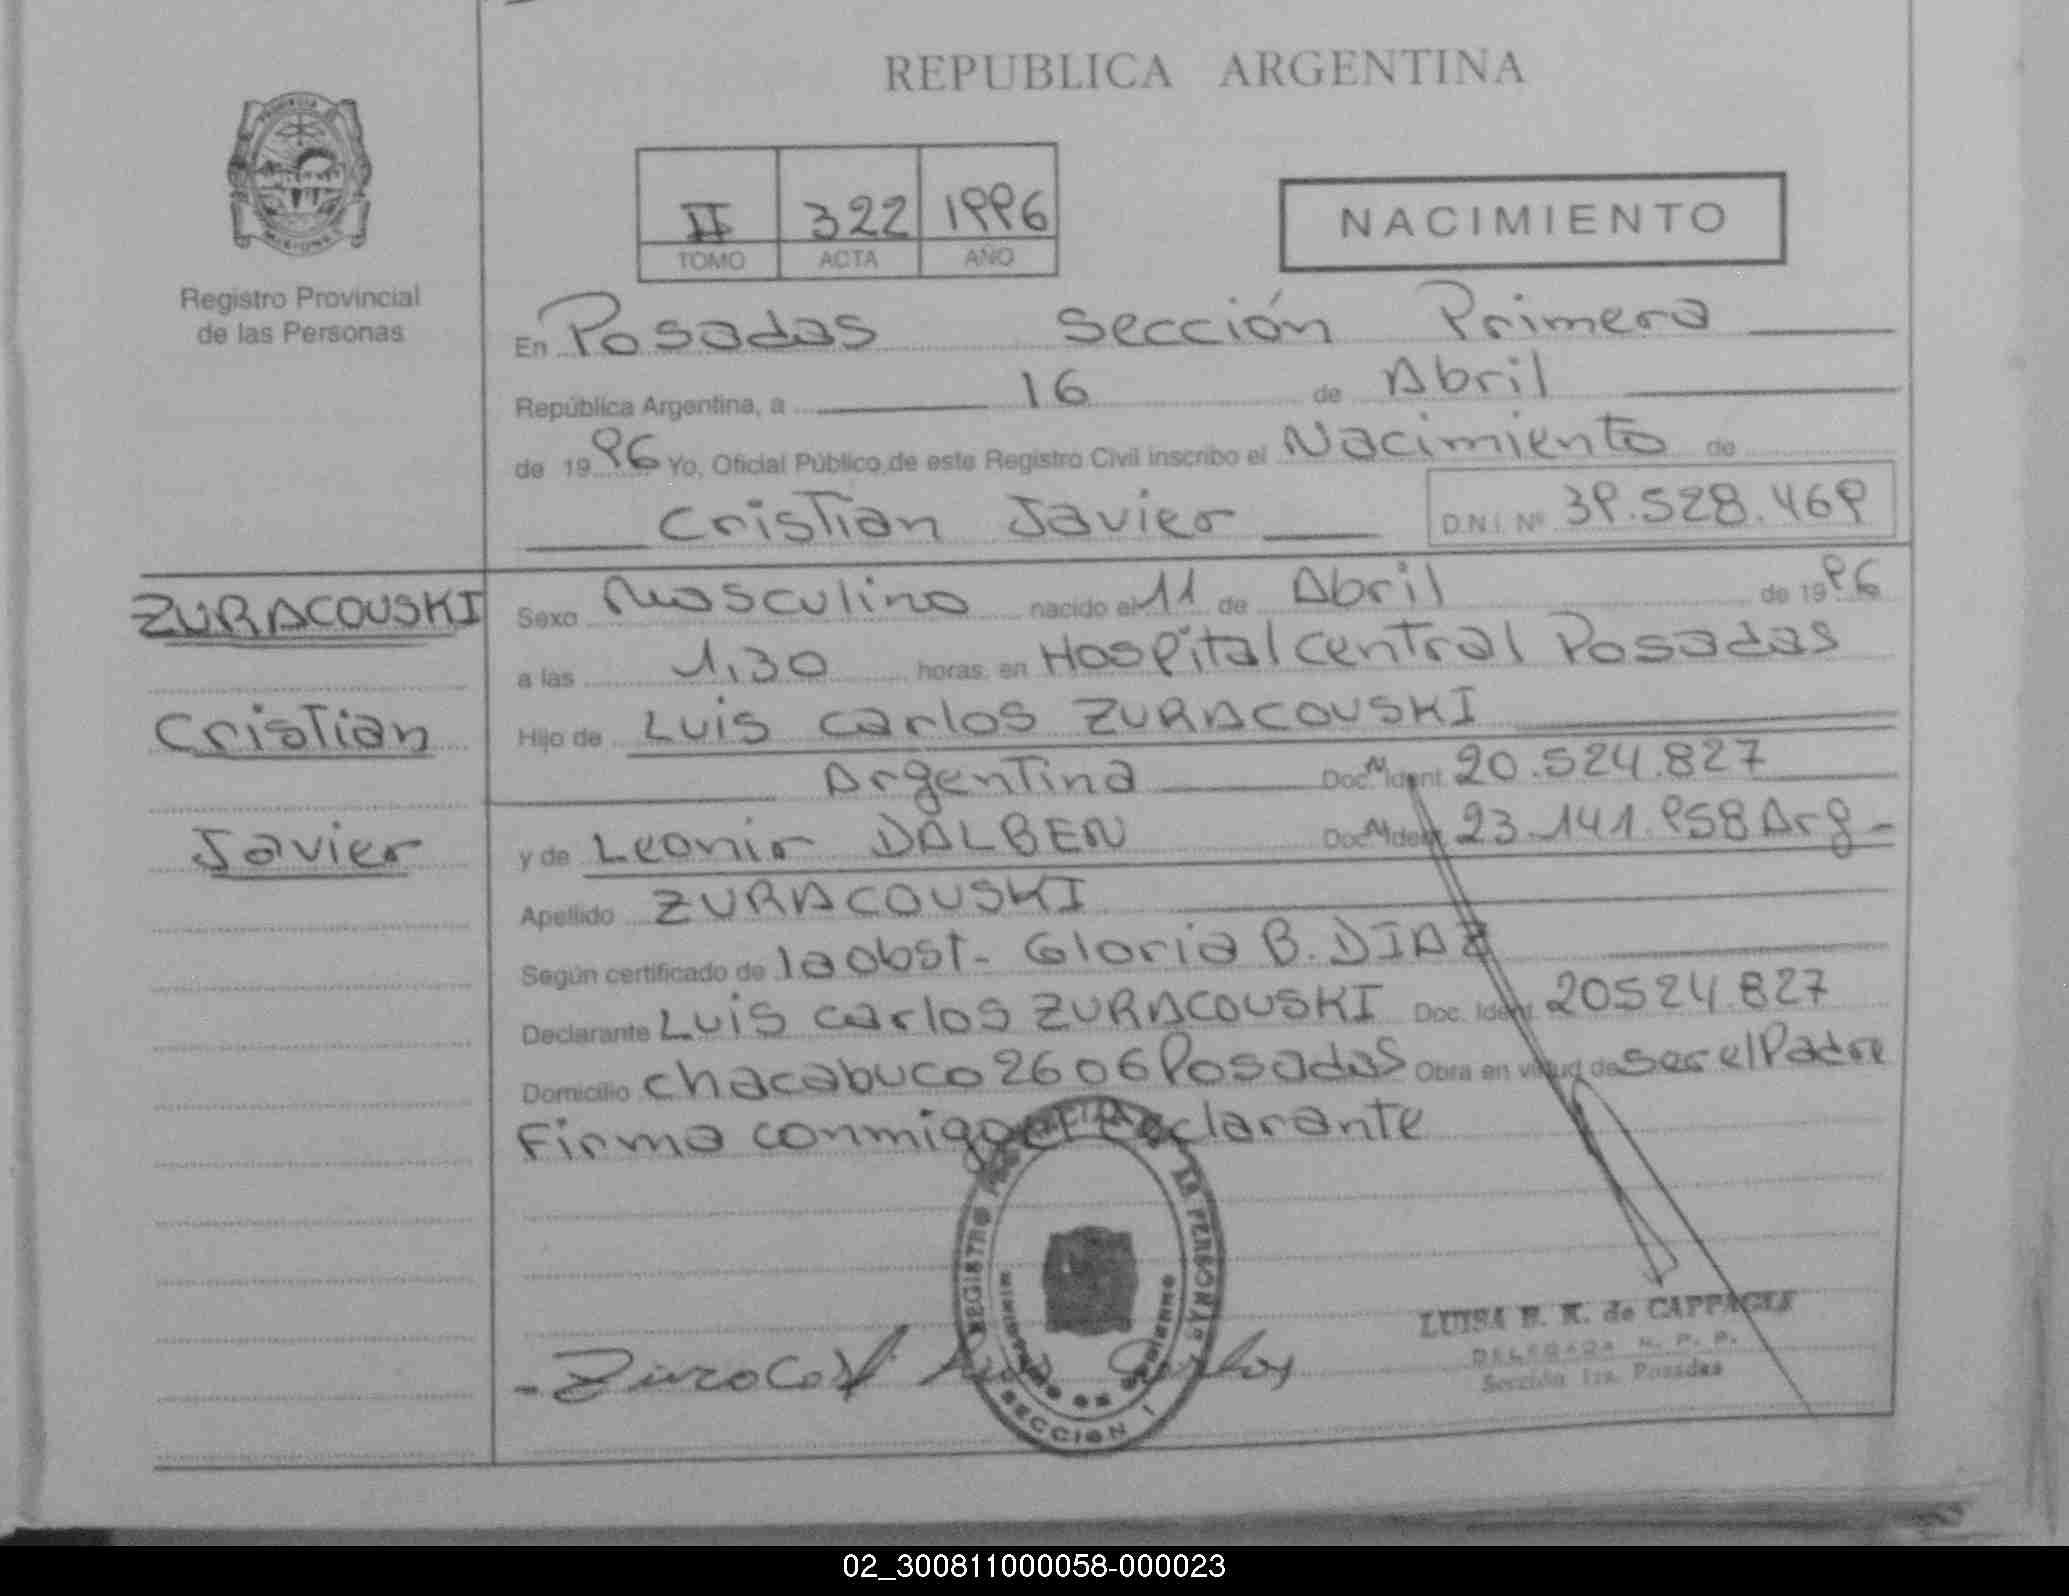 REPUBLICA ARGENTINA
II 322 1996
TOMO ACTA AÑO
NACIMIENTO
Registro Provincial
de las Personas
En Posadas Sección Primera
República Argentina, a 16 de Abril
de 1996 Yo, Oficial Público de este Registro Civil inscribo el Nacimiento de
Cristian Javier D.N.I. Nº 39.528.469
ZURACOUSKI
Cristian
Javier
Sexo Masculino nacido el 11 de Abril de 1996
a las 1,30 horas, en Hospital central Posadas
Hijo de Luis carlos ZURACOUSKI
Argentina Doc. Ident. 20.524.827
y de Leonir DALBEN Doc. Ident. 23.141.958 Arg-
Apellido ZURACOUSKI
Según certificado de la obst- Gloria B. DIAZ
Declarante Luis carlos ZURACOUSKI Doc. Ident. 20524.827
Domicilio chacabuco 2606 Posadas Obra en virtud de ser el Padre
Firma conmigo el declarante
REGISTRO LA PERSONAS
MINISTERIO DE GOBIERNO
SECCION 1
LUISA E. K. de CAPPAGLI
DELEGADA R. P. P.
Sección 1ra. Posadas
02_300811000058-000023